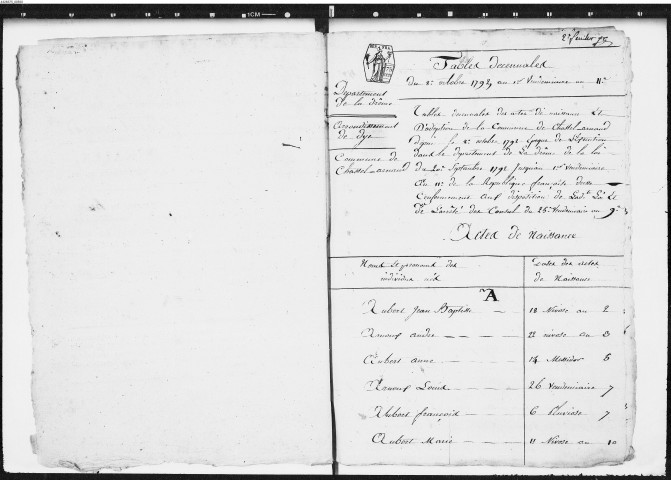 2e feuillet
Tables decennales
du 2e octobre 1792 au 1er Vendemiaire an 11e
Departement
de la drome
Arrondissement
de dye
Commune de
Chastel-arnaud
Tables decennales des actes de naissance Et
D'adoption de la Commune de Chastel-arnaud
Depuis le 2e octobre 1792 Epoque de L'Execution
dans le departement de La drome de la loi
du 20e Septembre 1792 Jusqu'au 1er Vendemiaire
An 11e de la Republique françoise
Conformement aux disposition de Ladte Loi Et
de L'arreté des Consuls du 25e Vendemiaire an 9e
Actes de Naissance
Noms Et prenoms des
individus nés
Dates des actes
de Naissance
A
Aubert Jean Baptiste 18 Nivose an 2
Arnoux andré 22 nivose an 3
Aubert anne 14 Messidor 5
Arnoux Louis 26 Vendemiaire 7
Aubert françois 6 Pluviose 7
Aubert Marie 11 Nivose an 10